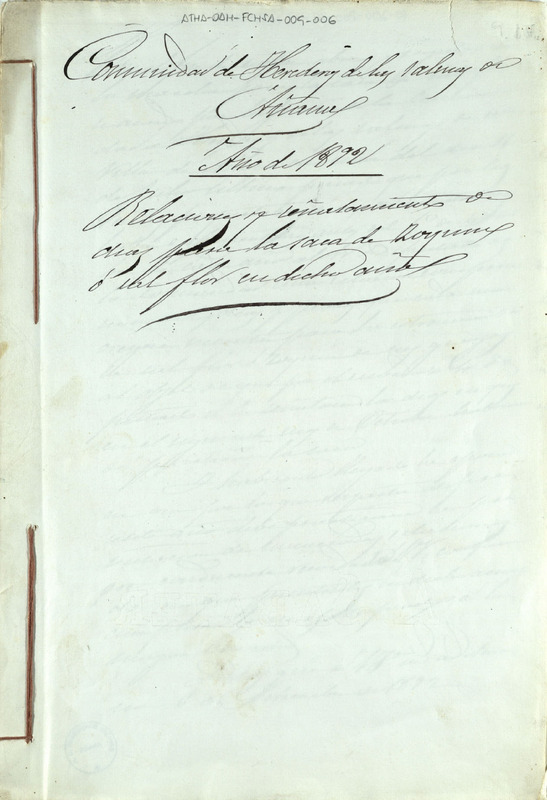 ATHA-DAH-FCHSA-009-006
Comunidad de Herederos de las Salinas de
Añana
Año de 1892
Relaciones y señalamiento de
dias para la saca de
ó sal flor en dicho año